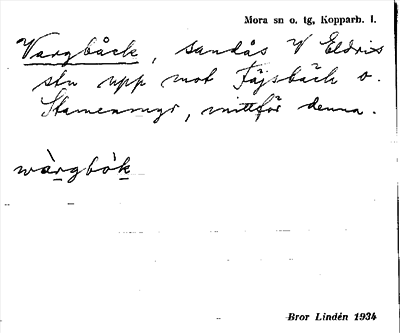 Mora sn o. tg, Kopparb. l.
Vargbåck, sandås V Eldris
stn upp mot Täjsbäck o.
Stamenmyr, mittför denna.
wàrgbòk
Bror Lindén 1934